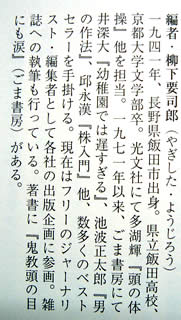 編者・柳下要司郎（やぎした・ようじろう）
一九四一年、長野県飯田市出身。県立飯田高校、
京都大学文学部卒。光文社にて多湖輝『頭の体
操』他を担当。一九七一年以来、ごま書房にて
井深大『幼稚園では遅すぎる』、池波正太郎『男
の作法』、邱永漢『株入門』他、数多くのベスト
セラーを手掛ける。現在はフリーのジャーナリ
スト・編集者として各社の出版企画に参画。雑
誌への執筆も行っている。著書に『鬼教頭の目
にも涙』（ごま書房）がある。